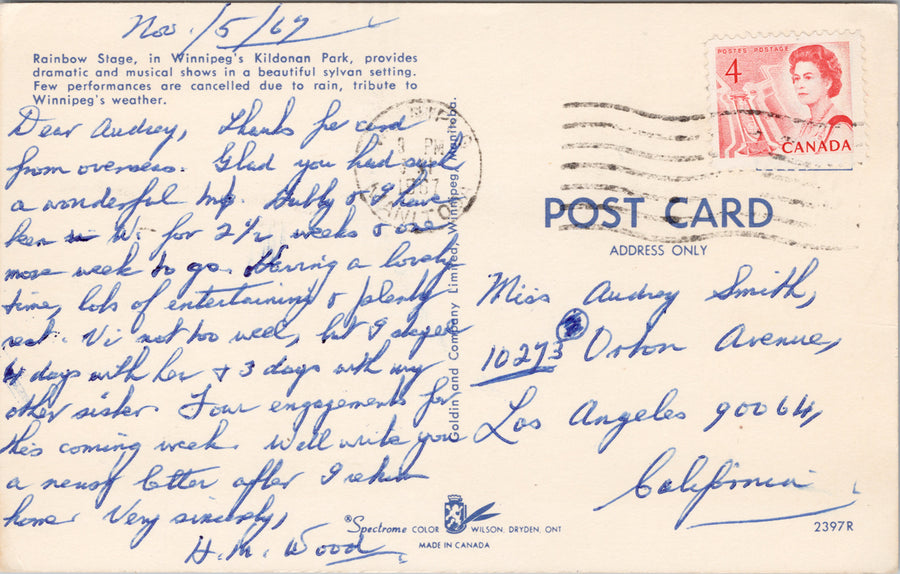 Nov. /5/67
Rainbow Stage, in Winnipeg's Kildonan Park, provides
dramatic and musical shows in a beautiful sylvan setting.
Few performances are cancelled due to rain, tribute to
Winnipeg's weather.
Dear Audrey, Thanks for card
from overseas. Glad you had such
a wonderful trip. Hubby & I have
been in W. for 2½ weeks & one
more week to go. Having a lovely
time, lots of entertaining & plenty
rest. Vi not too well, but I
4 days with her & 3 days with my
other sister. Four engagements for
this coming week. Will write you
a newsy letter after I return
home. Very sincerely,
H. M. Wood
Goldin and Company Limited, Winnipeg, Manitoba.
PM
1967
MANITOBA
POSTES POSTAGE
4
CANADA
POST CARD
ADDRESS ONLY
Miss Audrey Smith,
10273 Orton Avenue,
Los Angeles 90064,
California
Spectrome COLOR WILSON, DRYDEN, ONT
MADE IN CANADA
2397R